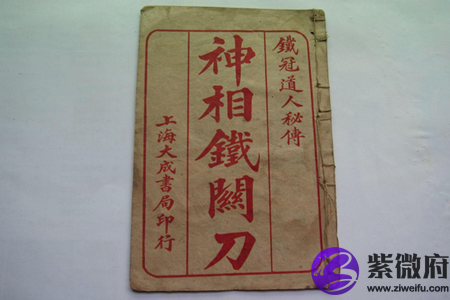 鐵冠道人秘傳
神相鐵關刀
上海大成書局印行
紫微府
www.ziweifu.com